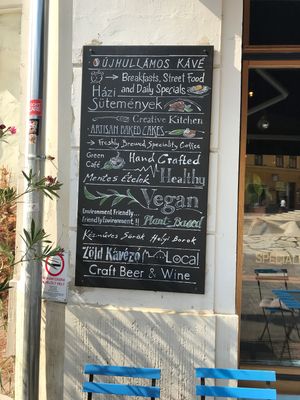 ÚJHULLÁMOS KÁVÉ
Breakfasts, Street Food
Házi and Daily Specials
Sütemények
Creative Kitchen
ARTISAN BAKED CAKES
Freshly Brewed Speciality Coffee
Green Café Hand Crafted
Mentes Ételek Healthy
Vegan
Environment Friendly...
Friendly Environment!! Plant-Based
Kézműves Sörök Helyi Borok
Zöld Kávézó Local
Craft Beer & Wine
SPECIAL